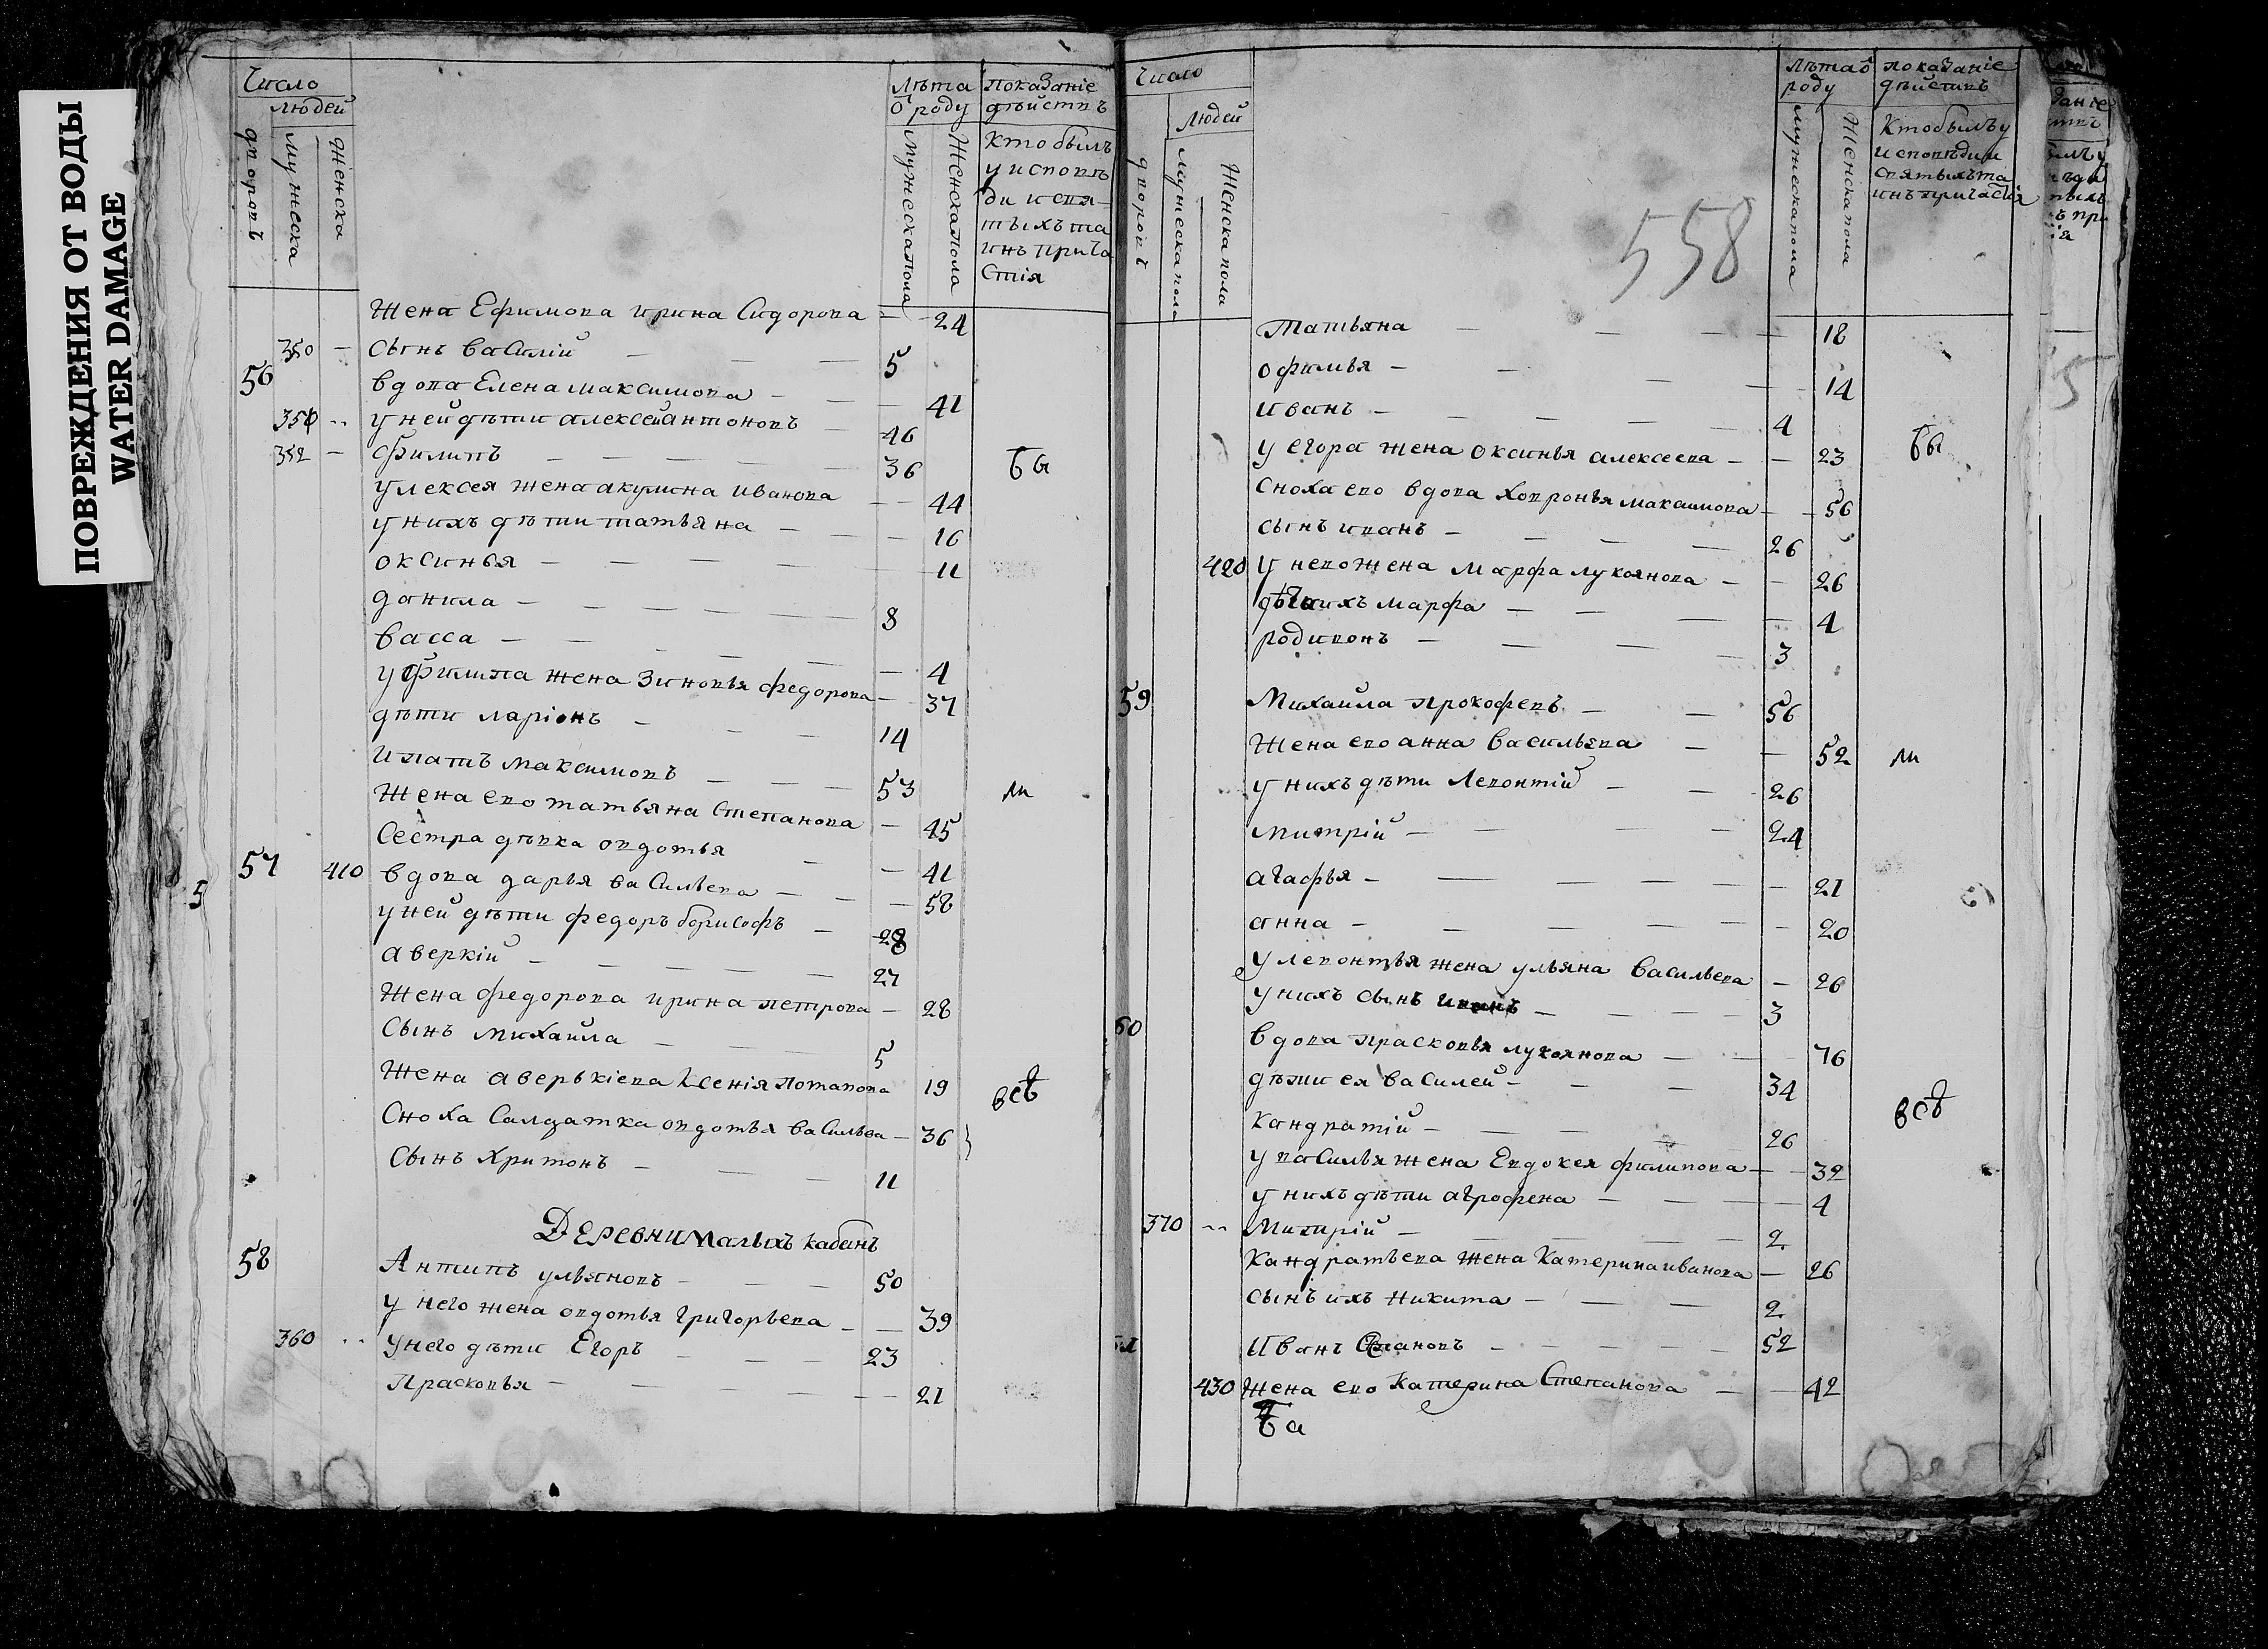 ПОВРЕЖДЕНИЯ ОТ ВОДЫ
WATER DAMAGE
Число
людей
дворовъ
мужеска
женска
Лѣта
о роду
мужеска пола
женска пола
показаніе
дѣйствъ
кто былъ
у исповѣ
ди и свя
тыхъ та
инъ прича
стія
Жена Ефимова ирина Сидорова 24
350 сынъ василій 5
56 вдова Елена максимова 41
351 у ней дѣти алексей антоновъ 46
352 Филипъ 36
бы
у лексея жена акулина иванова 44
у нихъ дѣти татьяна 16
оксинья 11
данила 8
васса 4
у Филипа жена Зиновья федорова 37
дѣти ларіонъ 14
ипатъ максимовъ 53
ли
Жена ево татьяна Степанова 45
Сестра дѣвка овдотья 41
5
57 410 вдова дарья васильева 58
у ней дѣти федоръ борисофъ 28
аверкій 27
Жена федорова ирина петрова 28
сынъ михаила 5
Жена аверькіева ксенія потапова 19
всѣ
Сноха Салдатка овдотья васильева 36
Сынъ Хритонъ 11
Деревни малыхъ кабанъ
58 Антипъ ульяновъ 50
у него жена овдотья григорьева 39
360 у него дѣти Егоръ 23
Прасковья 21
Число
людей
дворовъ
мужеска пола
женска пола
лѣта о
роду
мужеска пола
женска пола
показаніе
дѣйствъ
кто былъ у
исповѣди и
святыхъ та
инъ причастія
558
татьяна 18
офимья 14
иванъ 4
у егора жена оксинья алексеева 23
бы
Сноха ево вдова ховронья максимова 56
сынъ иванъ 26
420 у нево жена марфа лукоянова 26
дѣти ихъ марфа 4
родивонъ 3
59 Михаила прокофевъ 56
Жена ево анна васильева 52
ли
у нихъ дѣти Левонтій 26
митрій 24
агафья 21
анна 20
у левонтья жена ульяна васильева 26
у нихъ сынъ иванъ 3
60
вдова прасковья лукоянова 76
дѣти ея василей 34
кандратій 26
всѣ
у василья жена Евдокея филипова 32
у нихъ дѣти агрофена 4
370 Митрій 2
кандратьева жена катерина иванова 26
сынъ ихъ никита 2
61 Иванъ Степановъ 52
430 Жена ево катерина Степанова 42